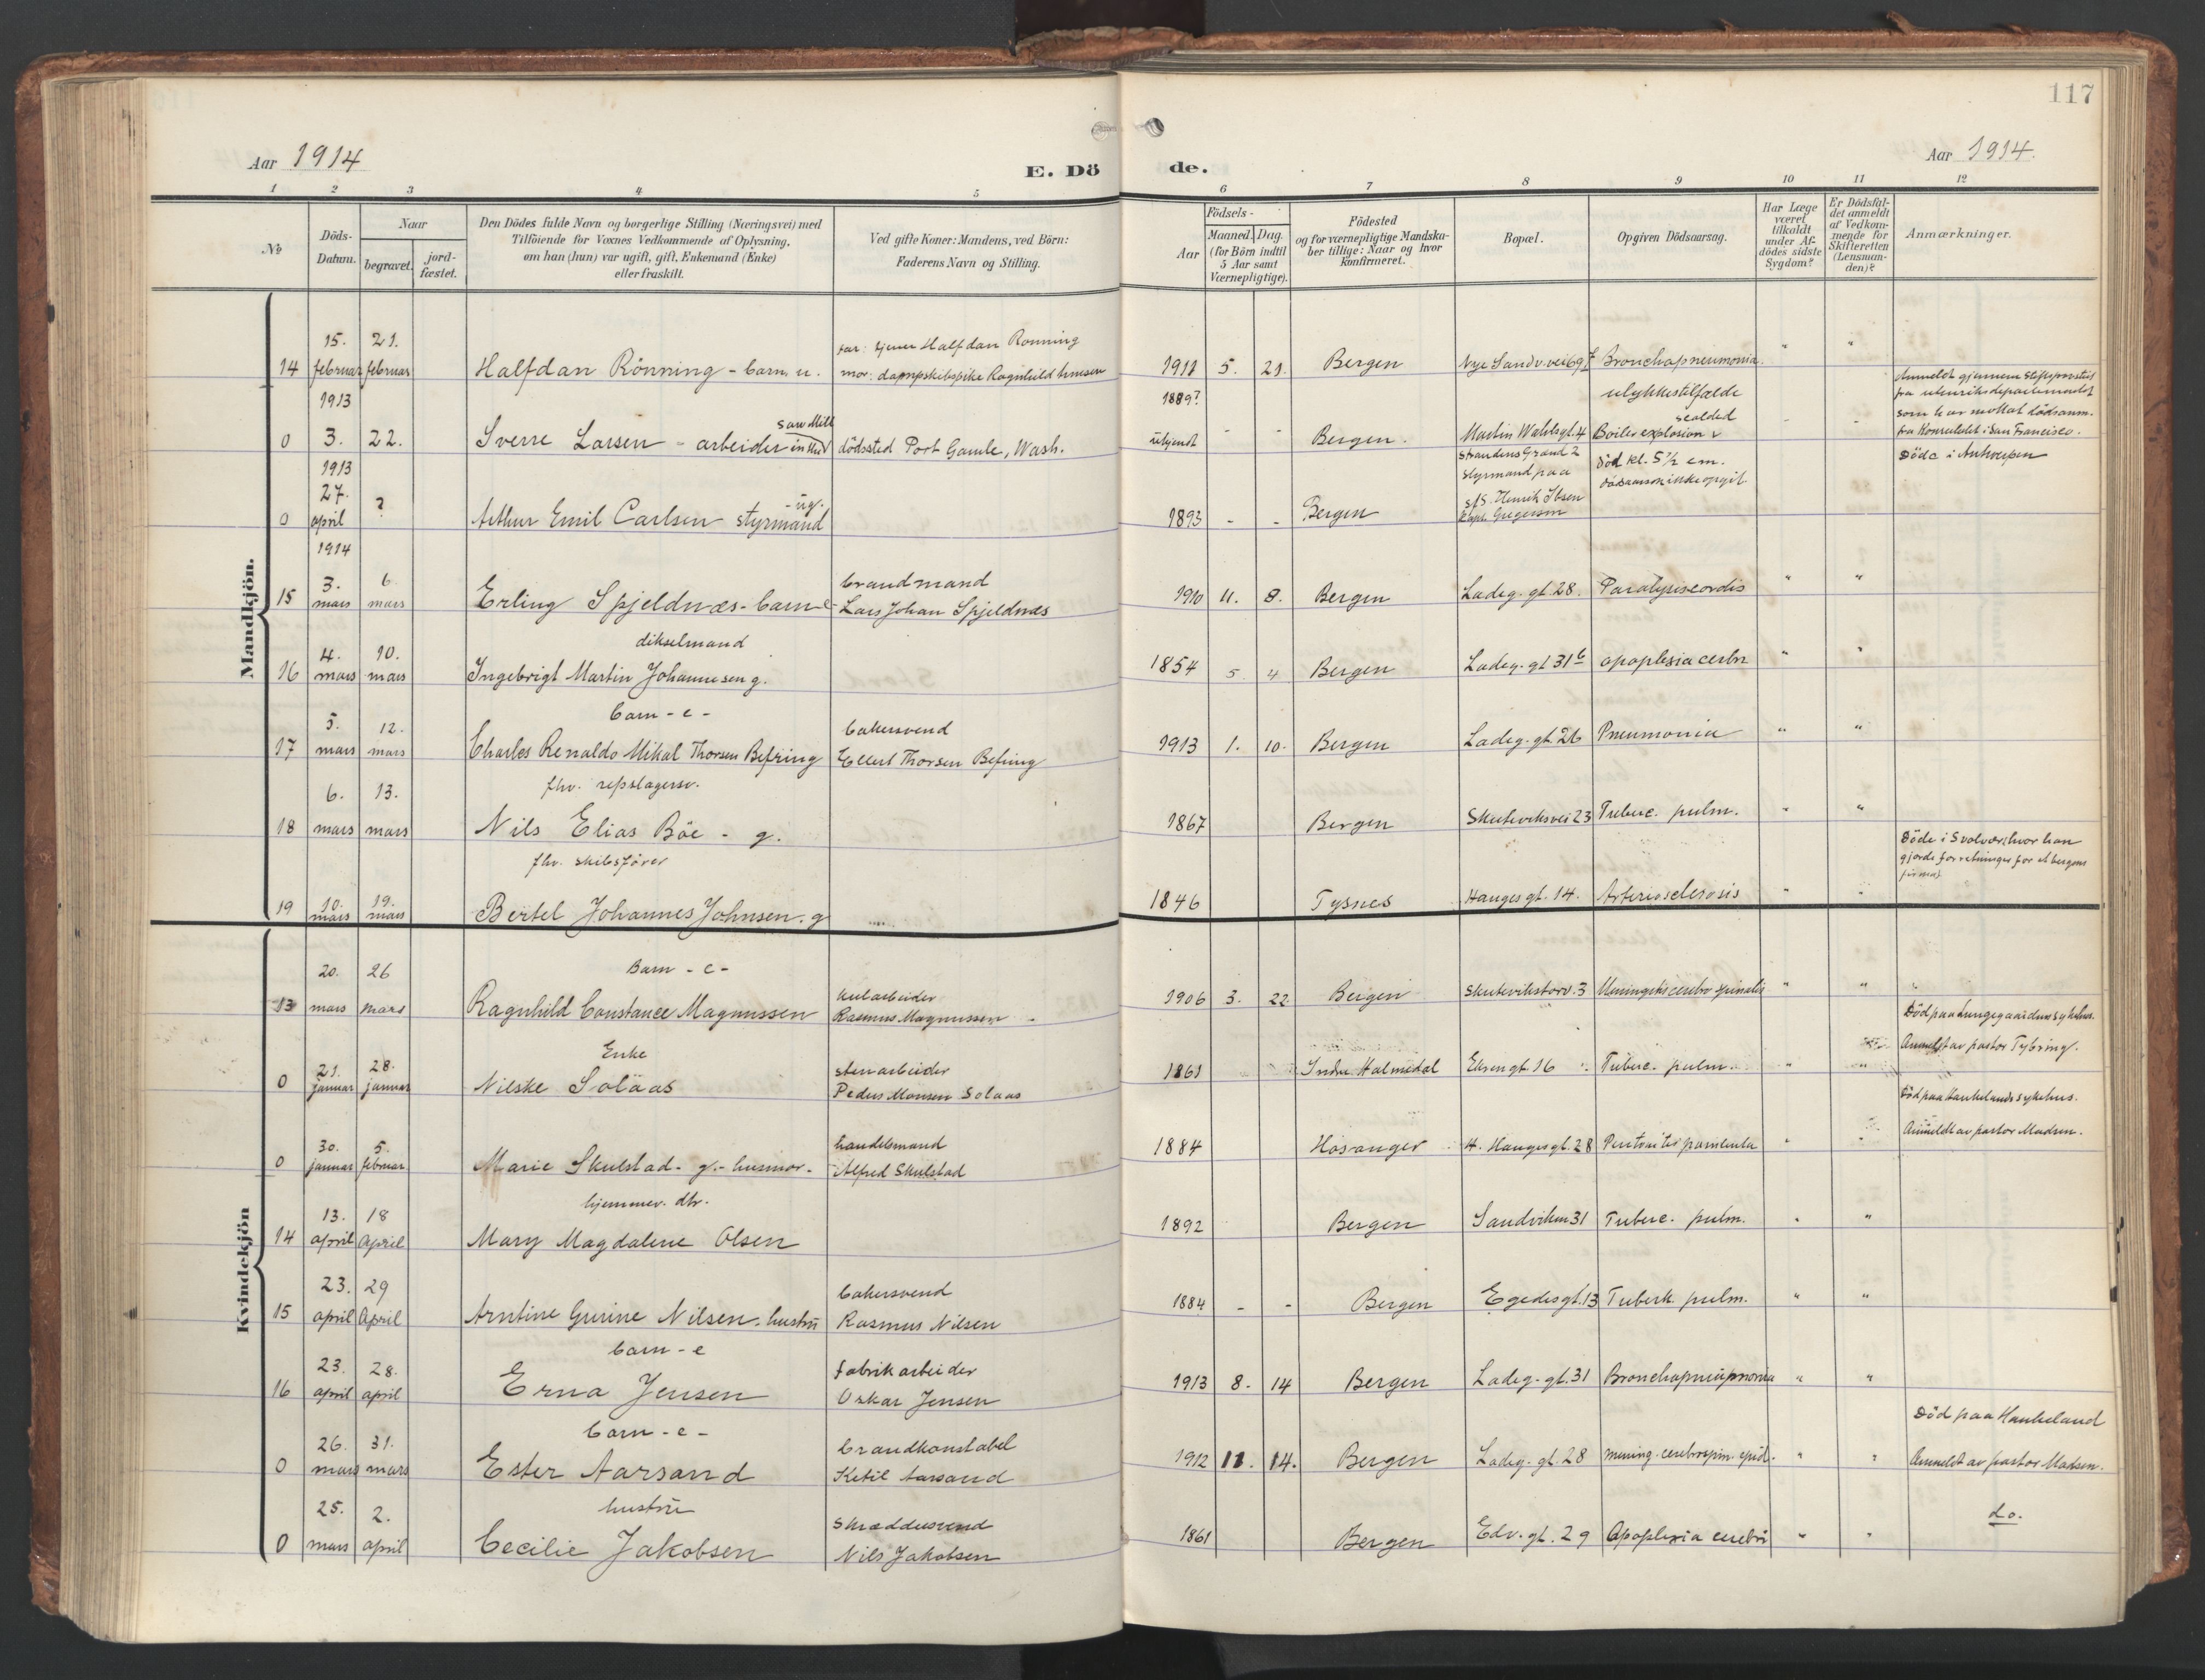 117
Aar 1914
E. Dö
de.
Aar 1914.
1 2 3 4 5 6 7 8 9 10 11 12
No
Döds-
Datum.
Naar
begravet.
jord-
fæstet.
Den Dödes fulde Navn og borgerlige Stilling (Næringsvei) med
Tilföiende for Voxnes Vedkommende af Oplysning,
om han (hun) var ugift, gift, Enkemand (Enke)
eller fraskilt.
Ved gifte Koner: Mandens, ved Börn:
Faderens Navn og Stilling.
Födsels-
Aar
Maaned. Dag.
(for Börn indtil
5 Aar samt
Værnepligtige).
Födested
og for værnepligtige Mandska-
ber tillige: Naar og hvor
Konfirmeret.
Bopæl.
Opgiven Dödsaarsag.
Har Læge
været
tilkaldt
under Af-
dödes sidste
Sygdom?
Er Dödsfal-
det anmeldt
af Vedkom-
mende for
Skifteretten
(Lensman-
den)?
Anmærkninger.
Mandkjön.
15. 21.
far: tjener Halfdan Ronning
14 februar februar Halfdan Rönning - barn. u. mor: dampskibspike Ragnhild 1911 5. 21. Bergen Nye Sandv.vei 69 Bronchopneumonia " "
1913 1889? ulykkestilfælde
Anmeldt gjennem
fra utenriksdepartementet
som har mottat dödsanm.
fra Konsulatet i San Francisco.
Saw Mill scalded
0 3. 22. Sverre Larsen - arbeider dödssted Port Gamle, Wash. ukjendt - - Bergen. Martin Wahlsgt. 4 Boiler explosion
1913 Strandens Grand 2 Död kl. 5½ em. Döde i Antwerpen
27. styrmand paa dödsaarsak ikke opgit.
- ug. s/s. Henrik Ibsen
0 april ? Arthur Emil Carlsen styrmand 1893 - - Bergen Kapt. Gregersen
1914
3. 6 brandmand
15 mars mars Erling Spjeldnæs - barn e- Lars Johan Spjeldnæs 1910 11. 8. Bergen Ladeg. gt 28. Paralysis cordis " "
dikselmand
4. 10.
16 mars mars Ingebrigt Martin Johannesen g. 1854 5 4 Bergen Ladeg. gt 31b apoplexia cerbr " "
Barn - e - bakersvend
5. 12.
17 mars mars Charles Renaldo Mikal Thorsen Befring Ellert Thorsen Befring 1913 1. 10. Bergen Ladeg. gt. 26 Pneumonia " "
fhv. repslagersv.
6. 13.
18 mars mars Nils Elias Böe - g. 1867 Bergen Skuteviksvei 23 Tuberc. pulm. " "
fhv. skibsförer
Döde i Svolvær, hvor han
gjorde forretninger for et bergens
firma
10. 19.
19 mars mars Bertel Johannes Johnsen. g 1846 Tysnes Hauges gt. 14. Arteriosclerosis " "
Kvindekjön
20. 26 Barn - e -
kularbeider
13 mars mars Ragnhild Constance Magnussen Rasmus Magnussen - 1906 3. 22 Bergen Skutevikstorv. 3 Meningitis cerebro spinalis " " "
Död paa Lungegaardens sykehus.
Enke stenarbeider
Anmeldt av pastor Tybring.
21. 28.
0 januar januar Nilske Solaas Peder Monsen Solaas 1861 Indre Holmedal gt 16 Tuberc. pulm. " "
Död paa Haukelands sykehus.
30. 5. handelsmand
0 januar februar Marie Skulstad - g. - husmor - Alfred Skulstad 1884 Hosanger H. Hauges gt. 28 " " Anmeldt av pastor Madsen.
hjemmev. dtr.
13. 18
14 april April Mary Magdalene Olsen 1892 Bergen Sandviken 31 Tuberc. pulm. " "
23. 29 bakersvend
15 april April Arntine Gurine Nilsen. hustru Rasmus Nilsen 1884 - - Bergen Egedes gt. 13 Tuberk. pulm. " "
barn - e
23. 28. fabrikarbeider
16 april april Erna Jensen Oskar Jensen 1913 8. 14 Bergen Ladeg. gt. 31 " "
barn - e -
Död paa Haukeland
26. 31. brandkonstabel
0 mars mars Ester Aarsand Ketil Aarsand 1912 11. 14. Bergen Ladeg. gt. 28 mening. cerebrospin. epid. " " Anmeldt av pastor Madsen.
hustru do.
25. 2. Skræddersvend
0 mars april Cecilie Jakobsen Nils Jakobsen 1861 Bergen Edv. gt. 29 Apoplexia cerebri " "